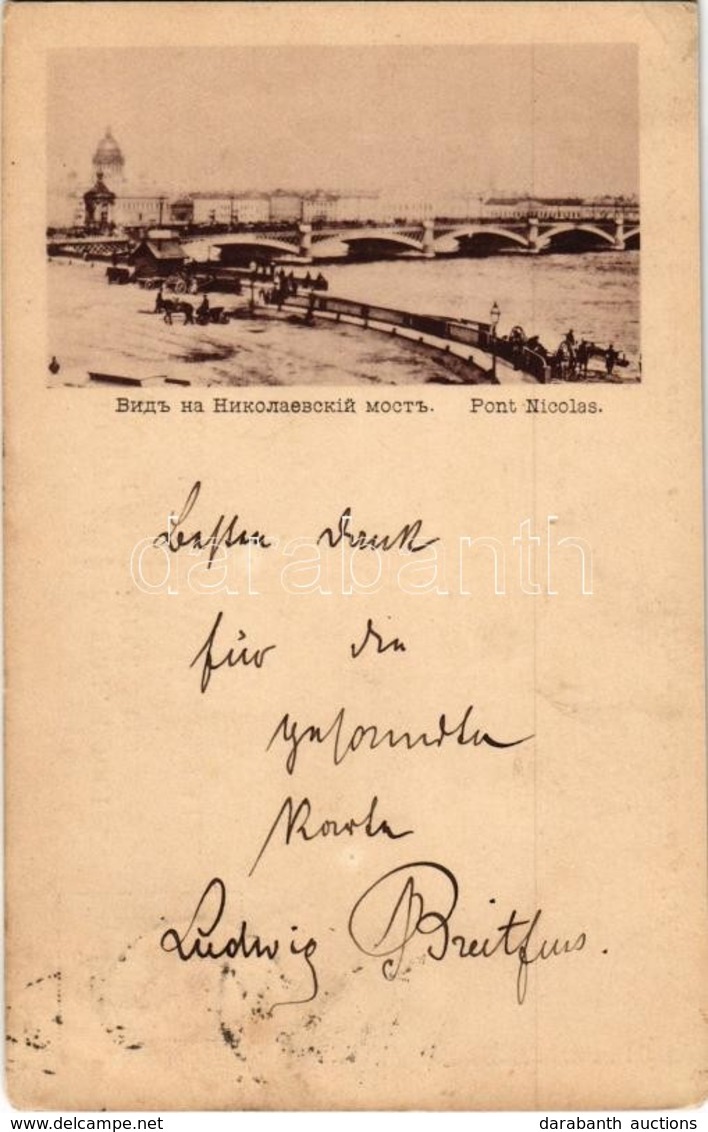 Видъ на Николаевскій мостъ. Pont Nicolas.
Besten Dank
für die
gesandte
Karte
Ludwig Breitfuss.
darabanth
delcampe.net
darabanth auctions